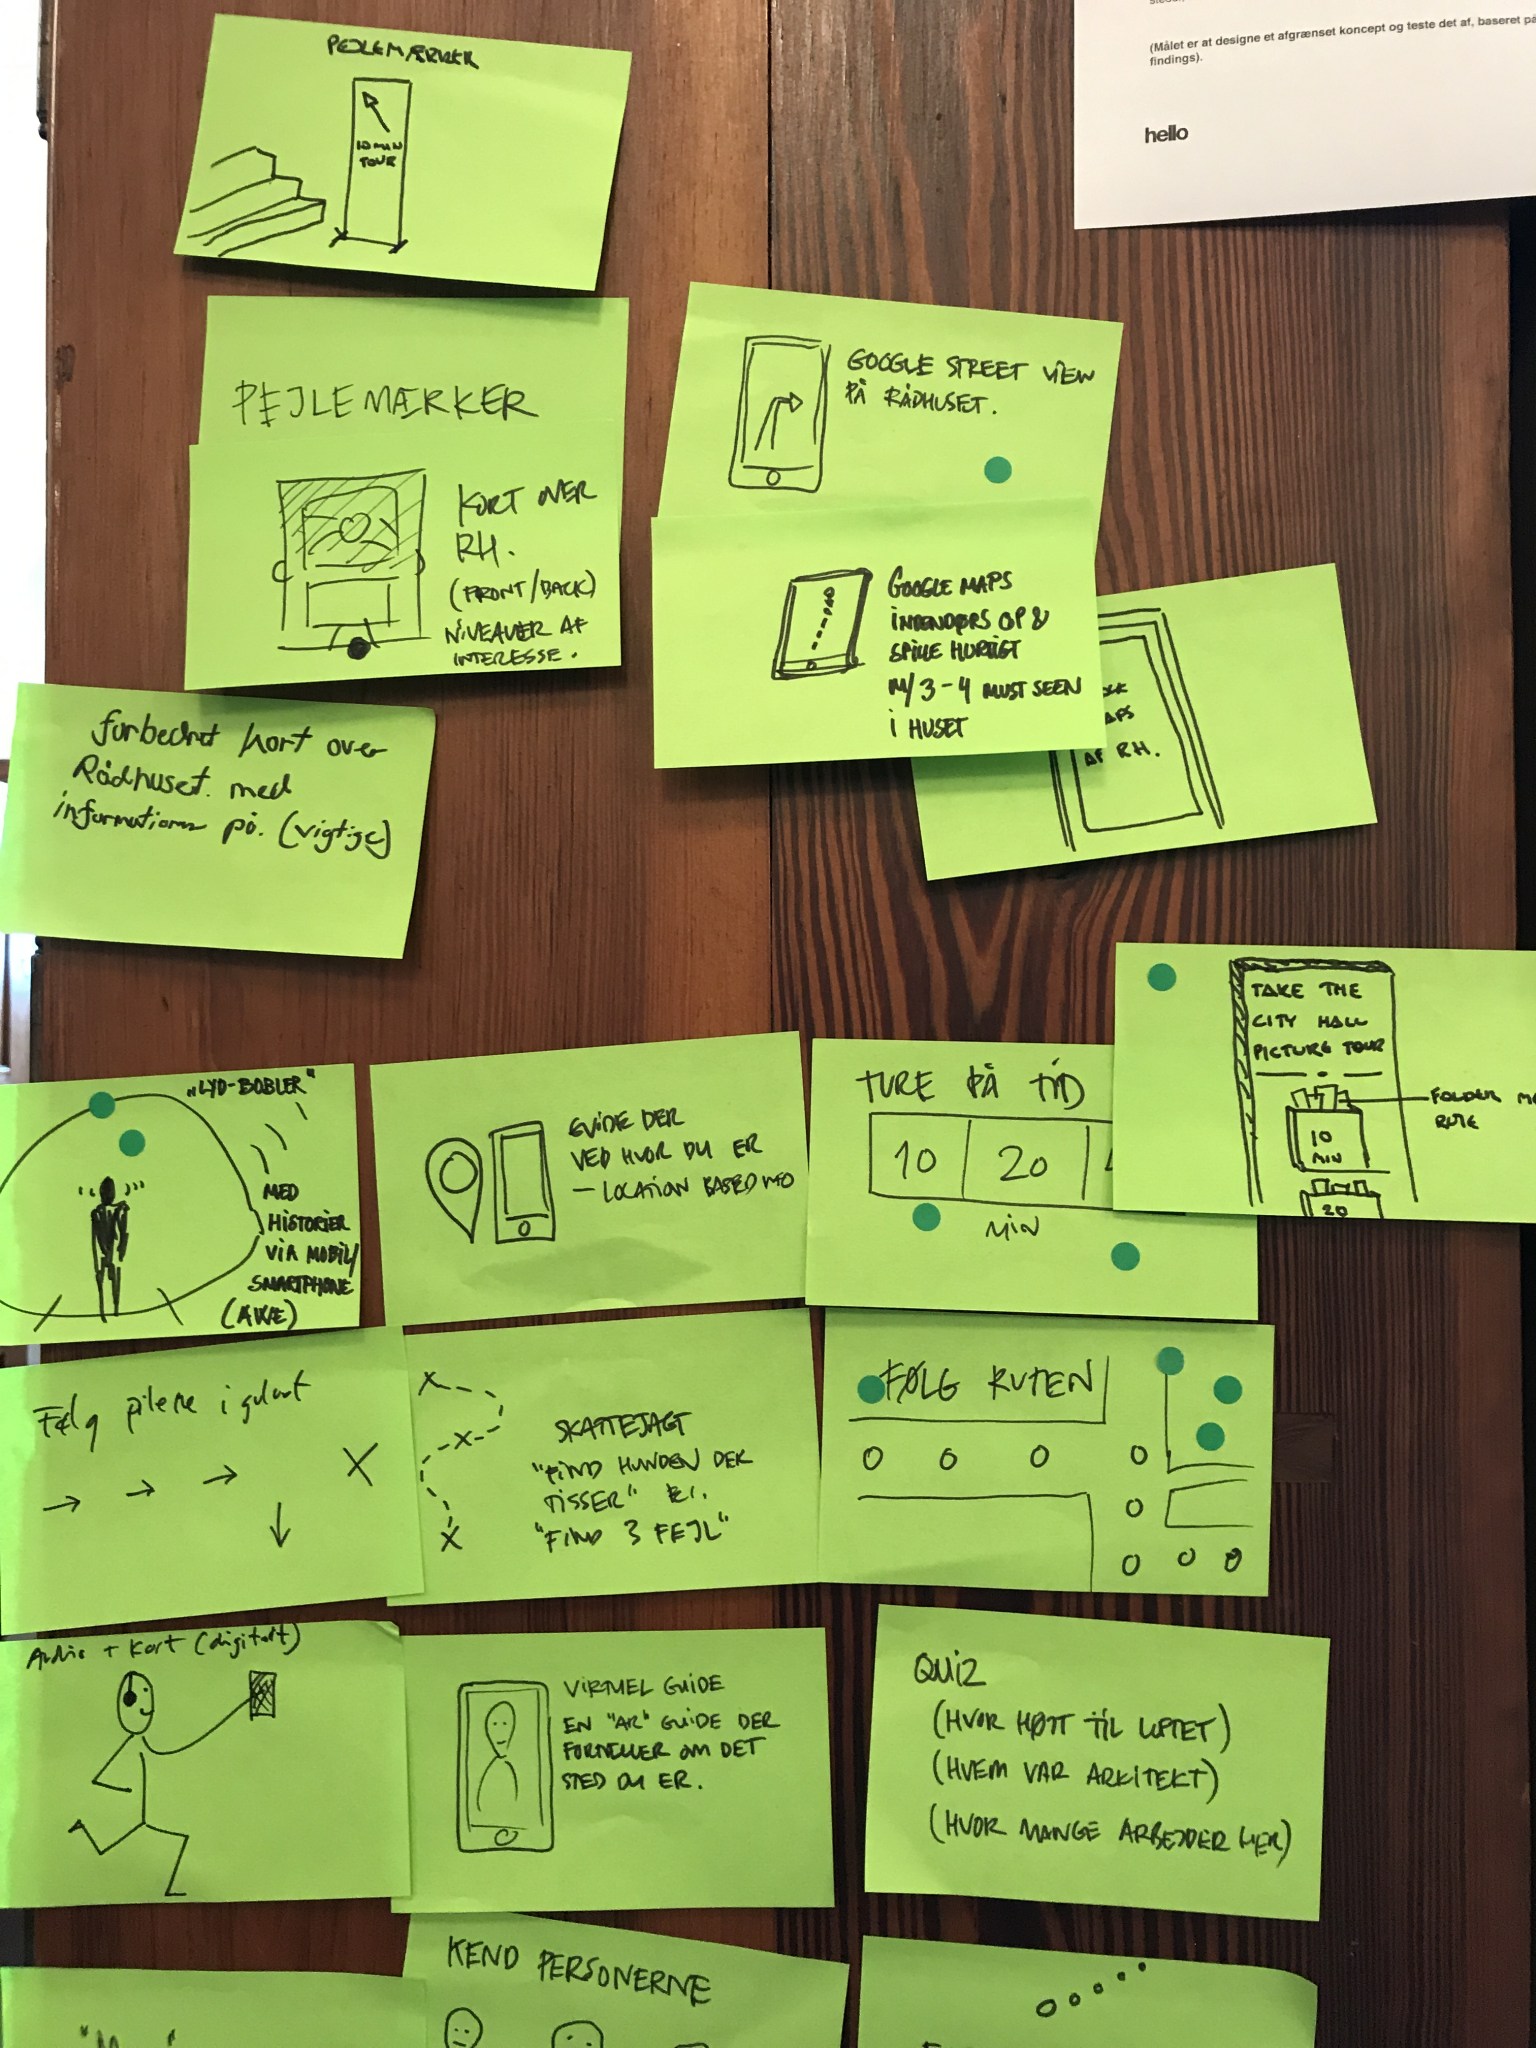 (Målet er at designe et afgrænset koncept og teste det af, baseret på
findings).
hello
PEJLEMÆRKER
10 MIN
TOUR
PEJLEMÆRKER
KORT OVER
RH.
(FRONT/BACK)
NIVEAUER AF
INTERESSE.
GOOGLE STREET VIEW
PÅ RÅDHUSET.
GOOGLE MAPS
INDENDØRS OP &
SPILLE HURTIGT
M/ 3-4 MUST SEEN
I HUSET
AF RH.
forbedret kort over
Rådhuset. med
informationer på. (vigtige)
TAKE THE
CITY HALL
PICTURE TOUR
FOLDER
RUTE
10
MIN
20
"LYD-BOBLER"
MED
HISTORIER
VIA MOBIL/
SMARTPHONE
GUIDE DER
VED HVOR DU ER
— LOCATION BASED INFO
TURE PÅ TID
10 20
MIN
Følg pilene i gulvet
SKATTEJAGT
"FIND HUNDEN DER
TISSER"
"FIND 3 FEJL"
FØLG RUTEN
Audio + kort (digitalt)
VIRTUEL GUIDE
EN "AR" GUIDE DER
FORTÆLLER OM DET
STED DU ER.
QUIZ
(HVOR HØJT TIL LOFTET)
(HVEM VAR ARKITEKT)
(HVOR MANGE ARBEJDER HER)
KEND PERSONERNE